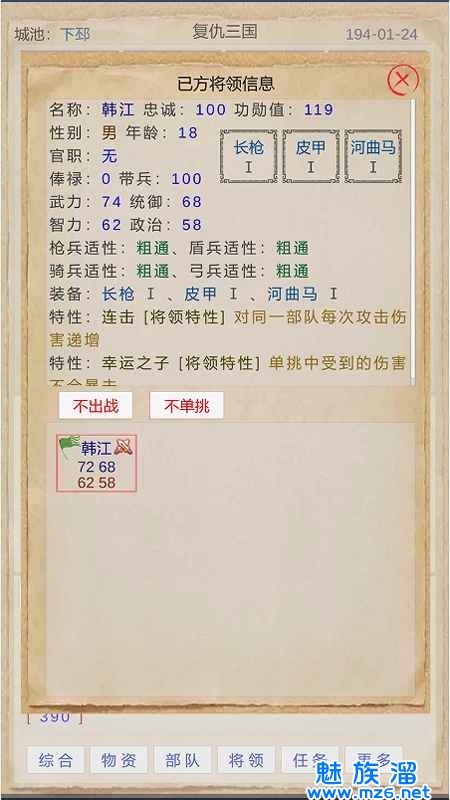 城池：下邳 复仇三国 194-01-24
己方将领信息
名称：韩江 忠诚：100 功勋值：119
性别：男 年龄：18
官职：无
俸禄：0 带兵：100
武力：74 统御：68
智力：62 政治：58
长枪 I
皮甲 I
河曲马 I
枪兵适性：粗通、盾兵适性：粗通
骑兵适性：粗通、弓兵适性：粗通
装备：长枪 I 、皮甲 I 、河曲马 I
特性：连击 [将领特性] 对同一部队每次攻击伤
害递增
特性：幸运之子 [将领特性] 单挑中受到的伤害
不会暴击
不出战 不单挑
韩江
72 68
62 58
[ 390 ]
综合 物资 部队 将领 任务 更多
魅族溜
www.mz6.net